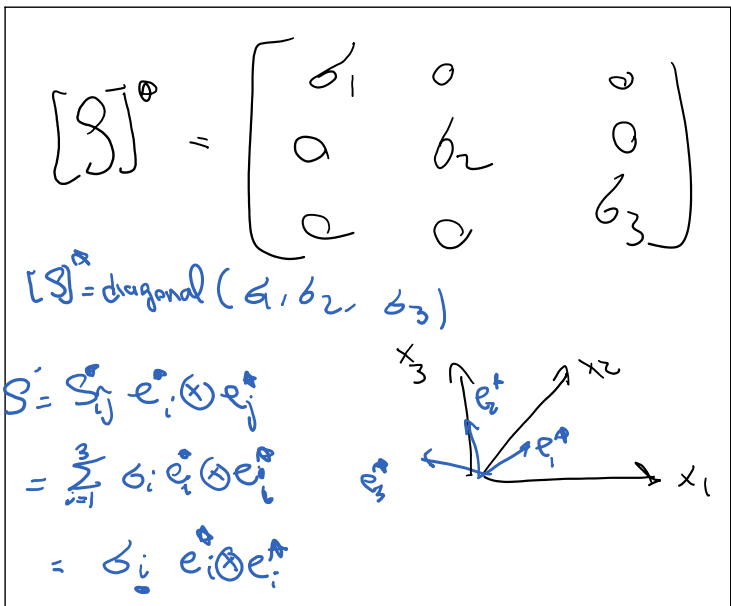 [S]* = [σ₁ 0 0
0 σ₂ 0
0 0 σ₃]
[S]* = diagonal (σ₁, σ₂, σ₃)
S = S*ᵢⱼ e*ᵢ ⊗ e*ⱼ
= Σ³ᵢ₌₁ σᵢ e*ᵢ ⊗ e*ᵢ
= σᵢ e*ᵢ ⊗ e*ᵢ
x₃
x₂
e₂*
e₁*
e₃*
x₁